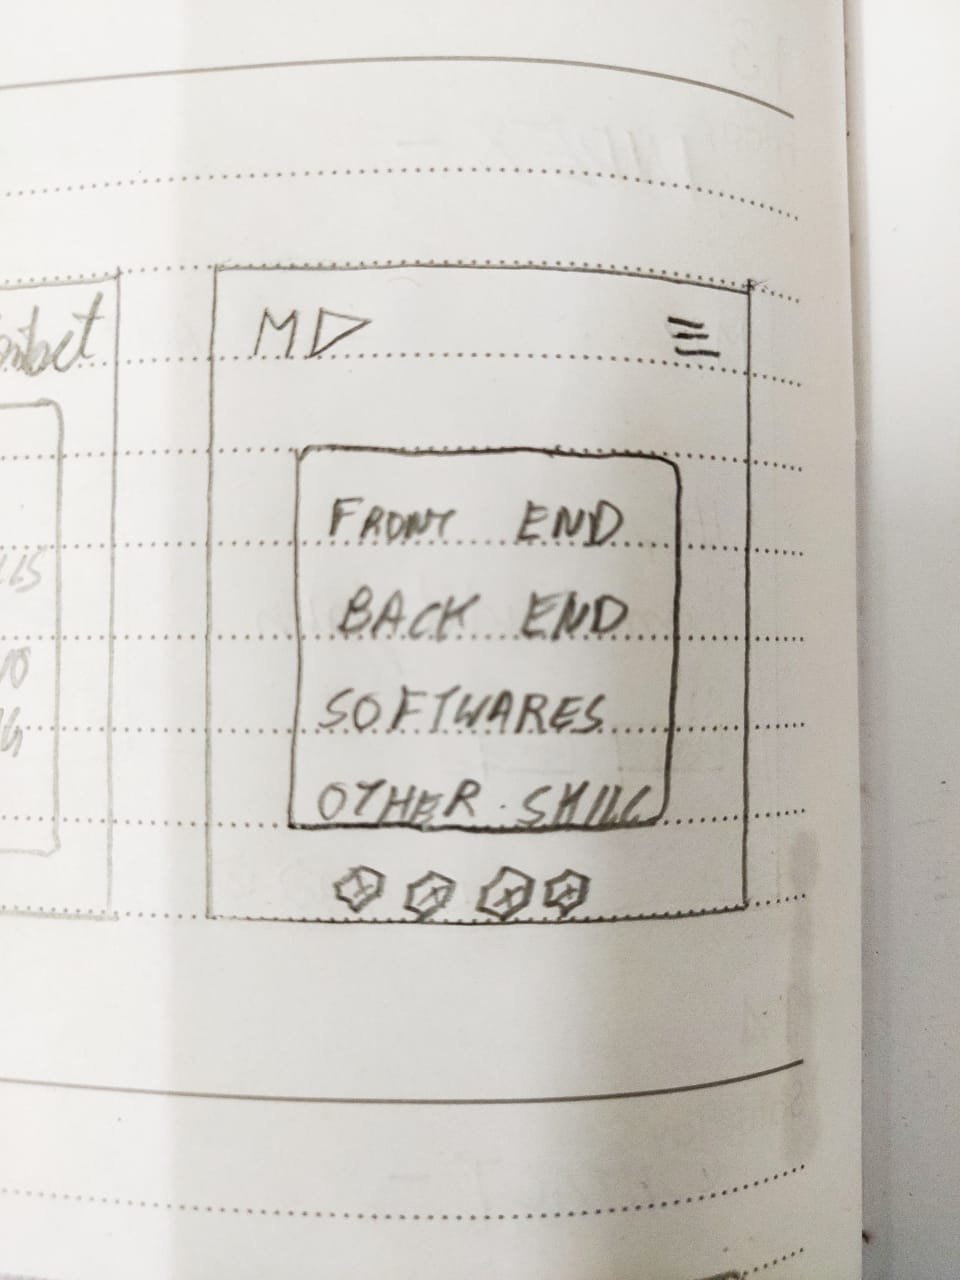 Contact
MD
FRONT END
BACK END
SOFTWARES
OTHER SKILL